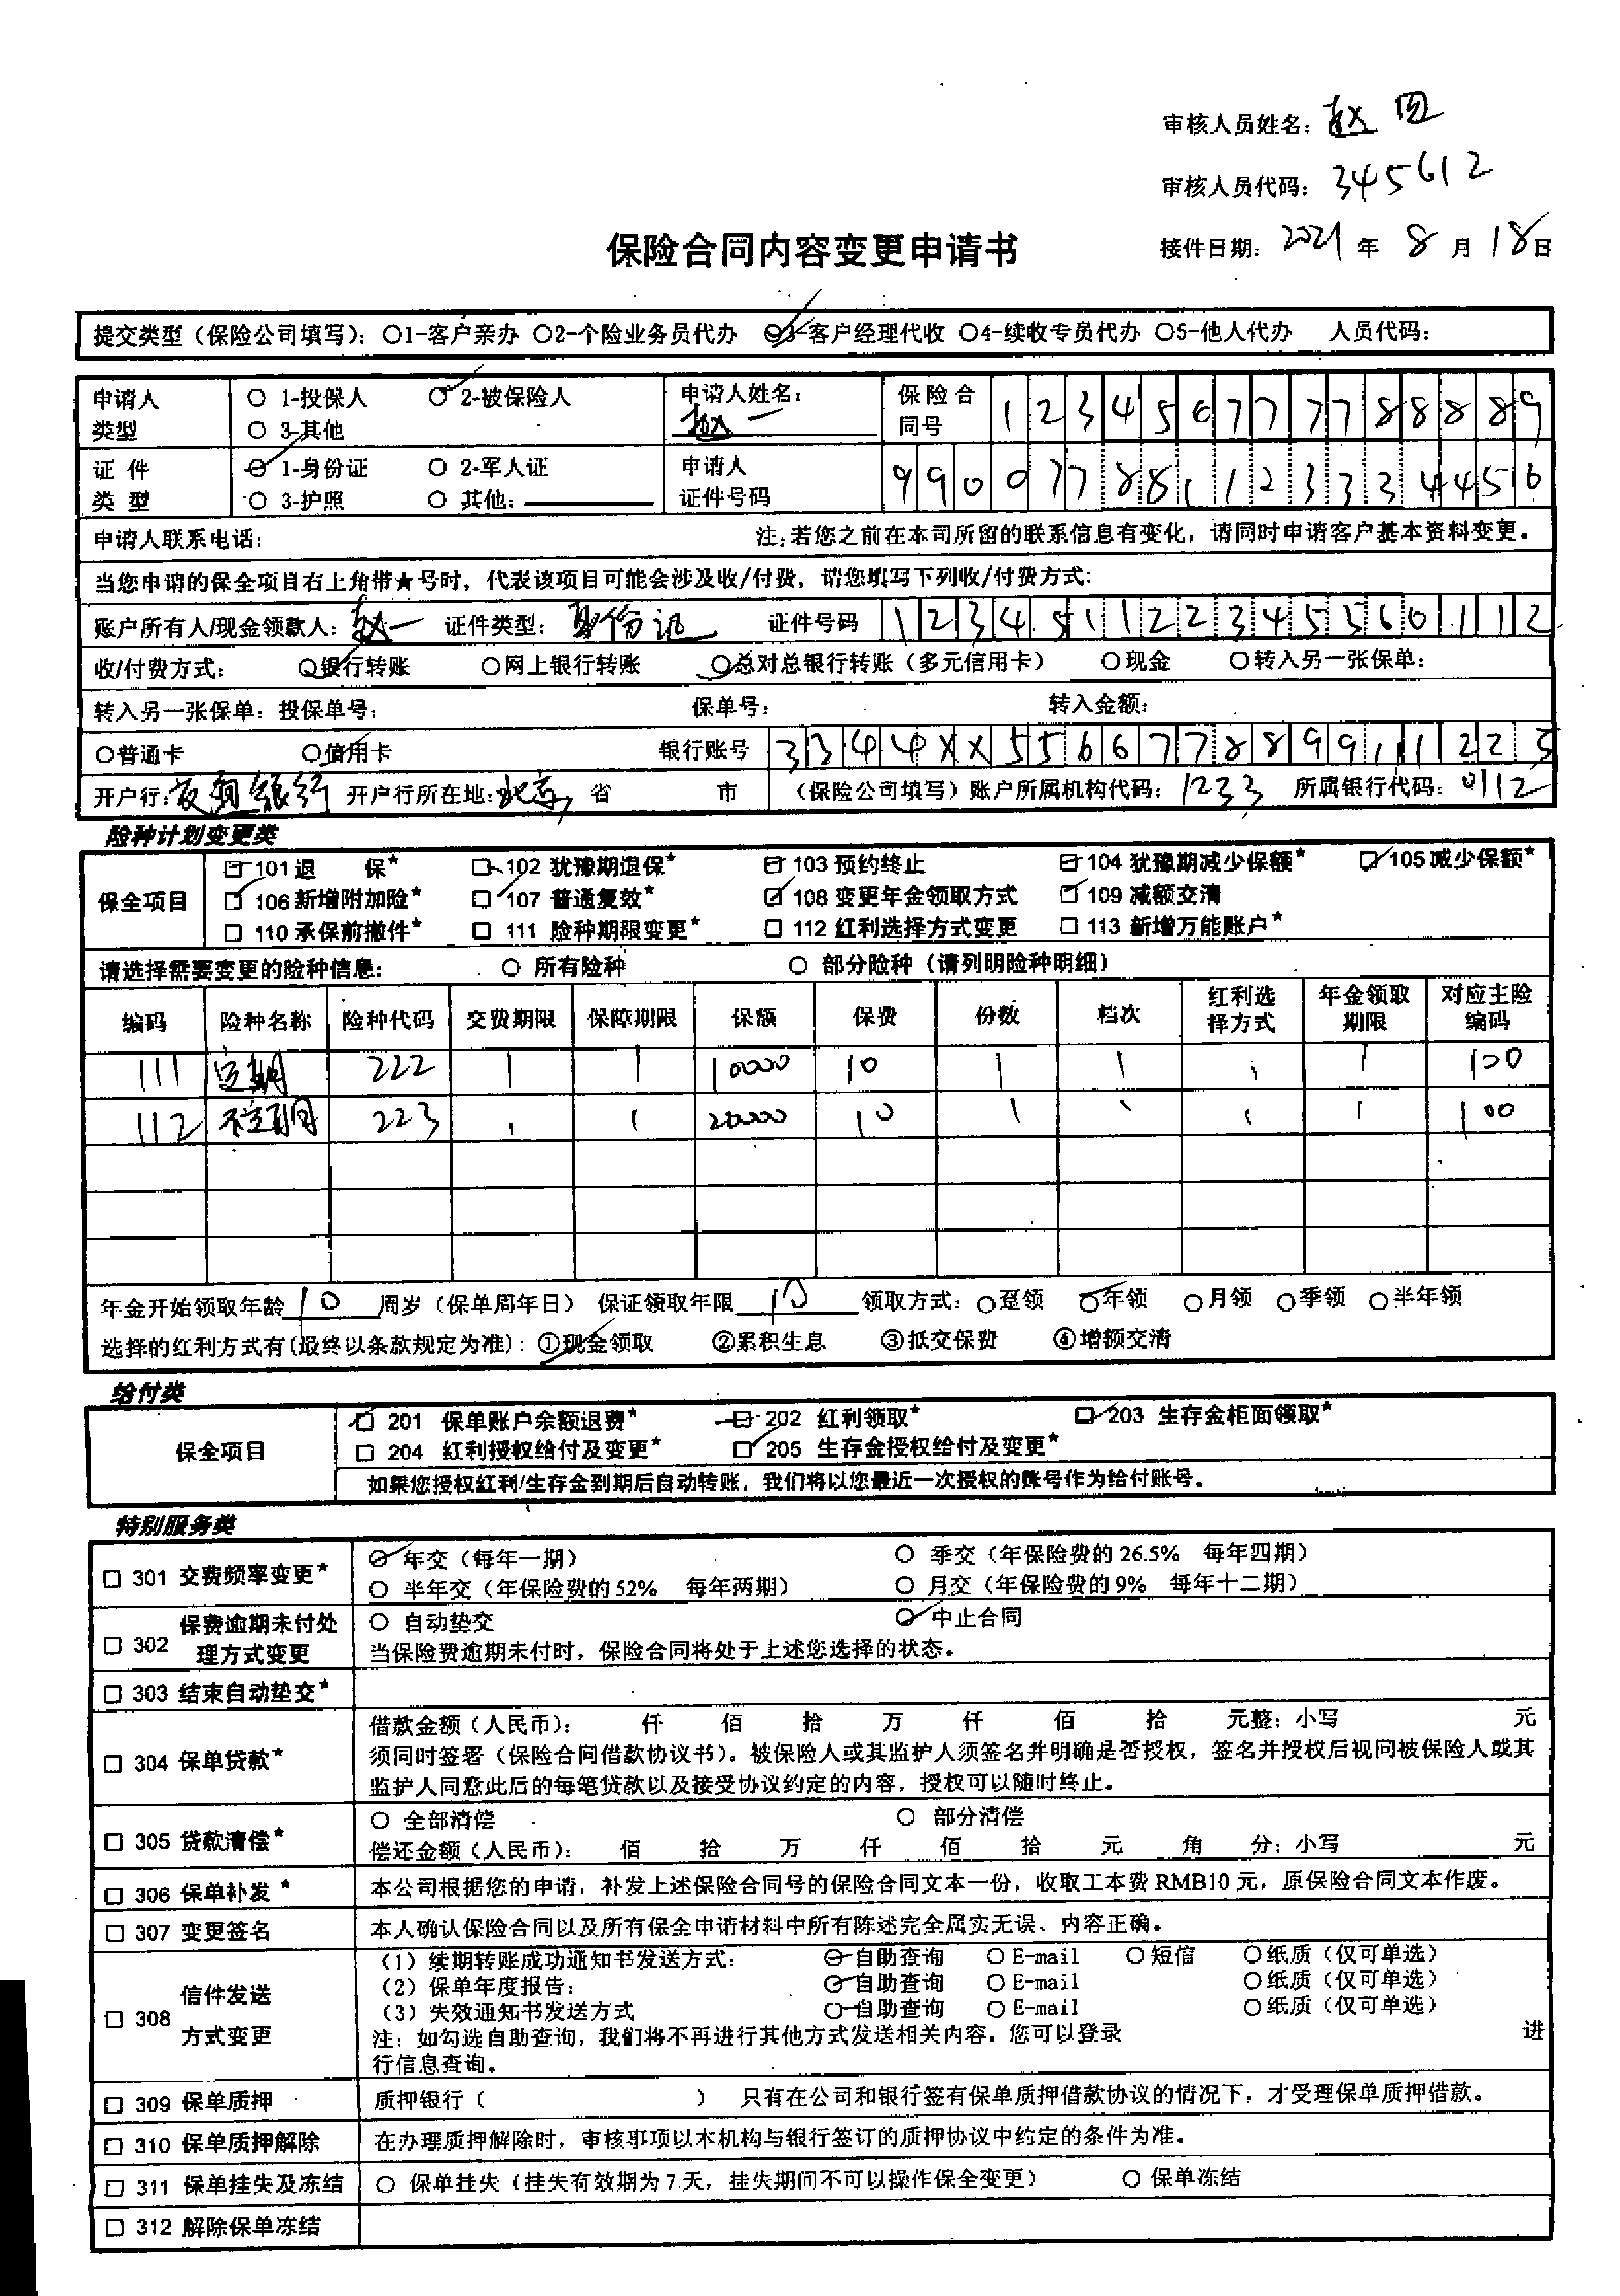 审核人员姓名：赵四
审核人员代码：345612
保险合同内容变更申请书
接件日期：2021年8月18日
提交类型（保险公司填写）：○1-客户亲办 ○2-个险业务员代办 ○3-客户经理代收 ○4-续收专员代办 ○5-他人代办 人员代码：
申请人类型 ○ 1-投保人 ○ 2-被保险人 ○ 3-其他 申请人姓名：赵一 保险合同号 123456777788889
证件类型 ○ 1-身份证 ○ 2-军人证 ○ 3-护照 ○ 其他： 申请人证件号码 990077881123334456
申请人联系电话： 注：若您之前在本司所留的联系信息有变化，请同时申请客户基本资料变更。
当您申请的保全项目右上角带★号时，代表该项目可能会涉及收/付费，请您填写下列收/付费方式：
账户所有人/现金领款人：赵一 证件类型：身份证 证件号码 123451122345560112
收/付费方式： ○银行转账 ○网上银行转账 ○总对总银行转账（多元信用卡） ○现金 ○转入另一张保单：
转入另一张保单：投保单号： 保单号： 转入金额：
○普通卡 ○信用卡 银行账号 3344XX556677889911223
开户行：发翔银行 开户行所在地：北京 省 市 （保险公司填写）账户所属机构代码：1233 所属银行代码：0112
险种计划变更类
保全项目
□ 101 退 保★ □ 102 犹豫期退保★ □ 103 预约终止 □ 104 犹豫期减少保额★ □ 105 减少保额★
□ 106 新增附加险★ □ 107 普通复效★ □ 108 变更年金领取方式 □ 109 减额交清
□ 110 承保前撤件★ □ 111 险种期限变更★ □ 112 红利选择方式变更 □ 113 新增万能账户★
请选择需要变更的险种信息： ○ 所有险种 ○ 部分险种（请列明险种明细）
编码 险种名称 险种代码 交费期限 保障期限 保额 保费 份数 档次 红利选择方式 年金领取期限 对应主险编码
111 定期 222 1 1 10000 10 1 1 1 1 100
112 不定期 223 1 1 20000 10 1 1 1 1 100
年金开始领取年龄 10 周岁（保单周年日） 保证领取年限 10 领取方式：○趸领 ○年领 ○月领 ○季领 ○半年领
选择的红利方式有(最终以条款规定为准)：①现金领取 ②累积生息 ③抵交保费 ④增额交清
给付类
保全项目
□ 201 保单账户余额退费★ □ 202 红利领取★ □ 203 生存金柜面领取★
□ 204 红利授权给付及变更★ □ 205 生存金授权给付及变更★
如果您授权红利/生存金到期后自动转账，我们将以您最近一次授权的账号作为给付账号。
特别服务类
□ 301 交费频率变更★ ○ 年交（每年一期） ○ 季交（年保险费的26.5% 每年四期）
○ 半年交（年保险费的52% 每年两期） ○ 月交（年保险费的9% 每年十二期）
□ 302 保费逾期未付处理方式变更 ○ 自动垫交 ○ 中止合同
当保险费逾期未付时，保险合同将处于上述您选择的状态。
□ 303 结束自动垫交★
□ 304 保单贷款★ 借款金额（人民币）： 仟 佰 拾 万 仟 佰 拾 元整；小写 元
须同时签署（保险合同借款协议书）。被保险人或其监护人须签名并明确是否授权，签名并授权后视同被保险人或其
监护人同意此后的每笔贷款以及接受协议约定的内容，授权可以随时终止。
□ 305 贷款清偿★ ○ 全部清偿 ○ 部分清偿
偿还金额（人民币）： 佰 拾 万 仟 佰 拾 元 角 分；小写 元
□ 306 保单补发★ 本公司根据您的申请，补发上述保险合同号的保险合同文本一份，收取工本费RMB10元，原保险合同文本作废。
□ 307 变更签名 本人确认保险合同以及所有保全申请材料中所有陈述完全属实无误、内容正确。
□ 308 信件发送方式变更 （1）续期转账成功通知书发送方式： ○自助查询 ○E-mail ○短信 ○纸质（仅可单选）
（2）保单年度报告： ○自助查询 ○E-mail ○纸质（仅可单选）
（3）失效通知书发送方式 ○自助查询 ○E-mail ○纸质（仅可单选）
注：如勾选自助查询，我们将不再进行其他方式发送相关内容，您可以登录 进
行信息查询。
□ 309 保单质押 质押银行（ ） 只有在公司和银行签有保单质押借款协议的情况下，才受理保单质押借款。
□ 310 保单质押解除 在办理质押解除时，审核事项以本机构与银行签订的质押协议中约定的条件为准。
□ 311 保单挂失及冻结 ○ 保单挂失（挂失有效期为7天，挂失期间不可以操作保全变更） ○ 保单冻结
□ 312 解除保单冻结